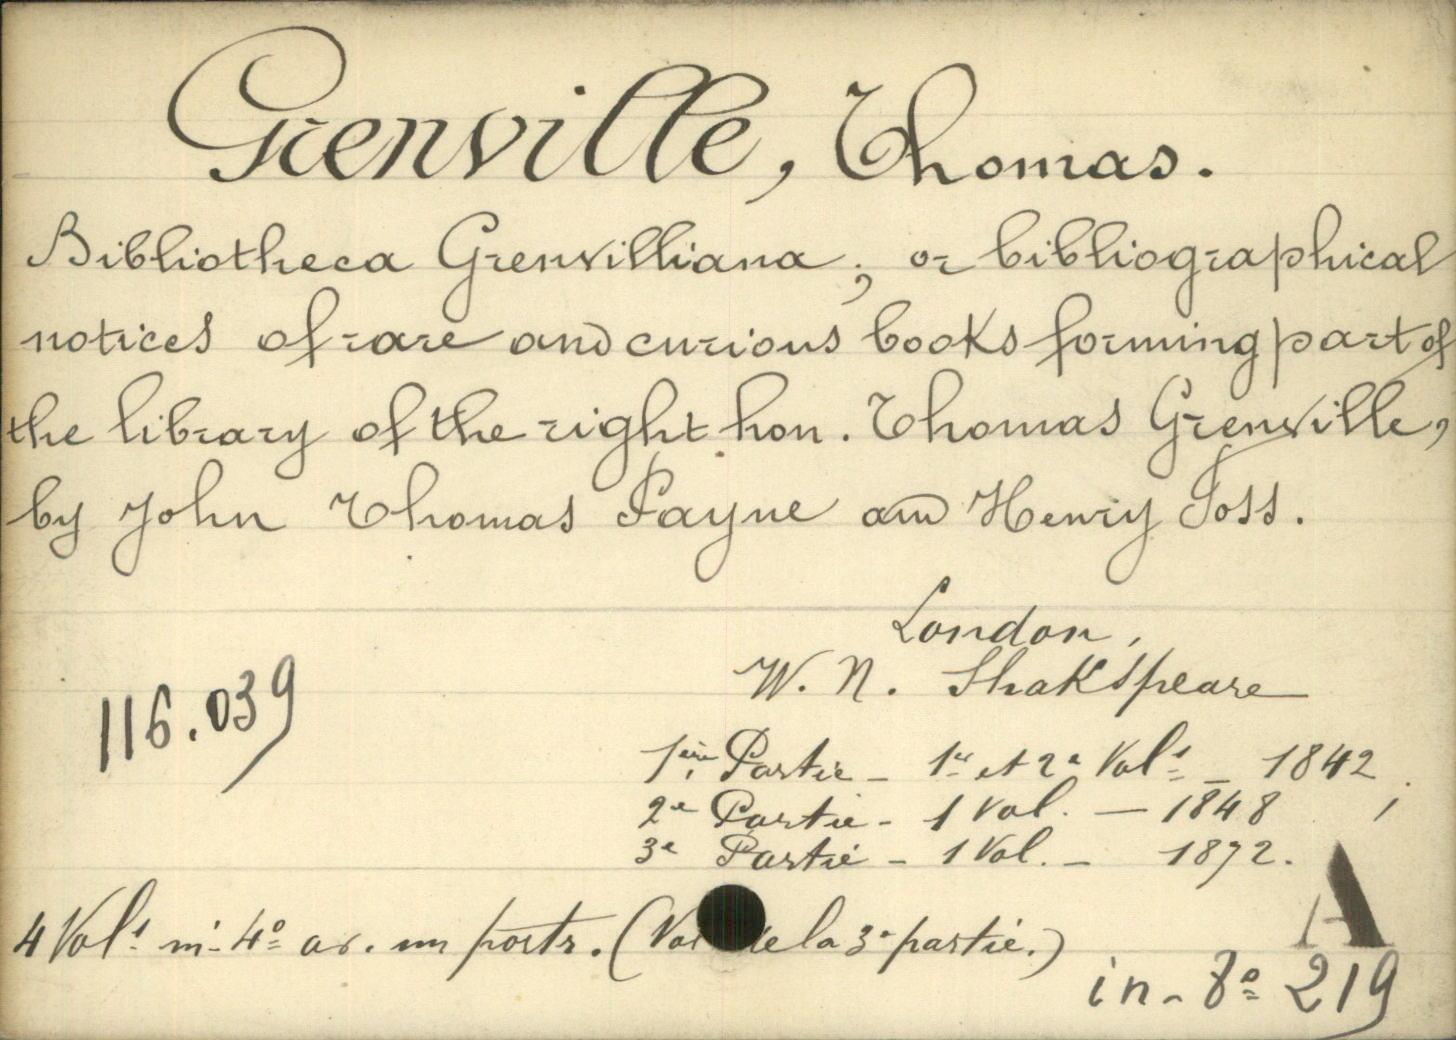 Grenville, Thomas.
Bibliotheca Grenvilliana; or bibliographical
notices of rare and curious books forming part of
the library of the right hon. Thomas Grenville,
by John Thomas Payne and Henry Foss.
London,
W. N. Shakspeare
116.039
1ère Partie - 1er et 2e Vols - 1842,
2e Partie - 1 Vol. - 1848
3e Partie - 1 Vol. - 1872.
4 Vols in-4º av. un portr. ( de la 3e partie.)
A
in-8º 219